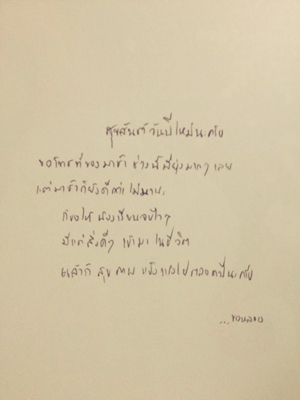 สุขสันต์วันปีใหม่นะครับ
ขอโทษที่ของมาช้า ช่วงนี้ยุ่งมากๆ เลย
แต่มาช้าก็ยังดีกว่าไม่มานะ
ก็ขอให้น้องเรียนจบไวๆ
มีแต่สิ่งดีๆ เข้ามาในชีวิต
แล้วก็ สุขภาพ แข็งแรงไปตลอดปีนะครับ